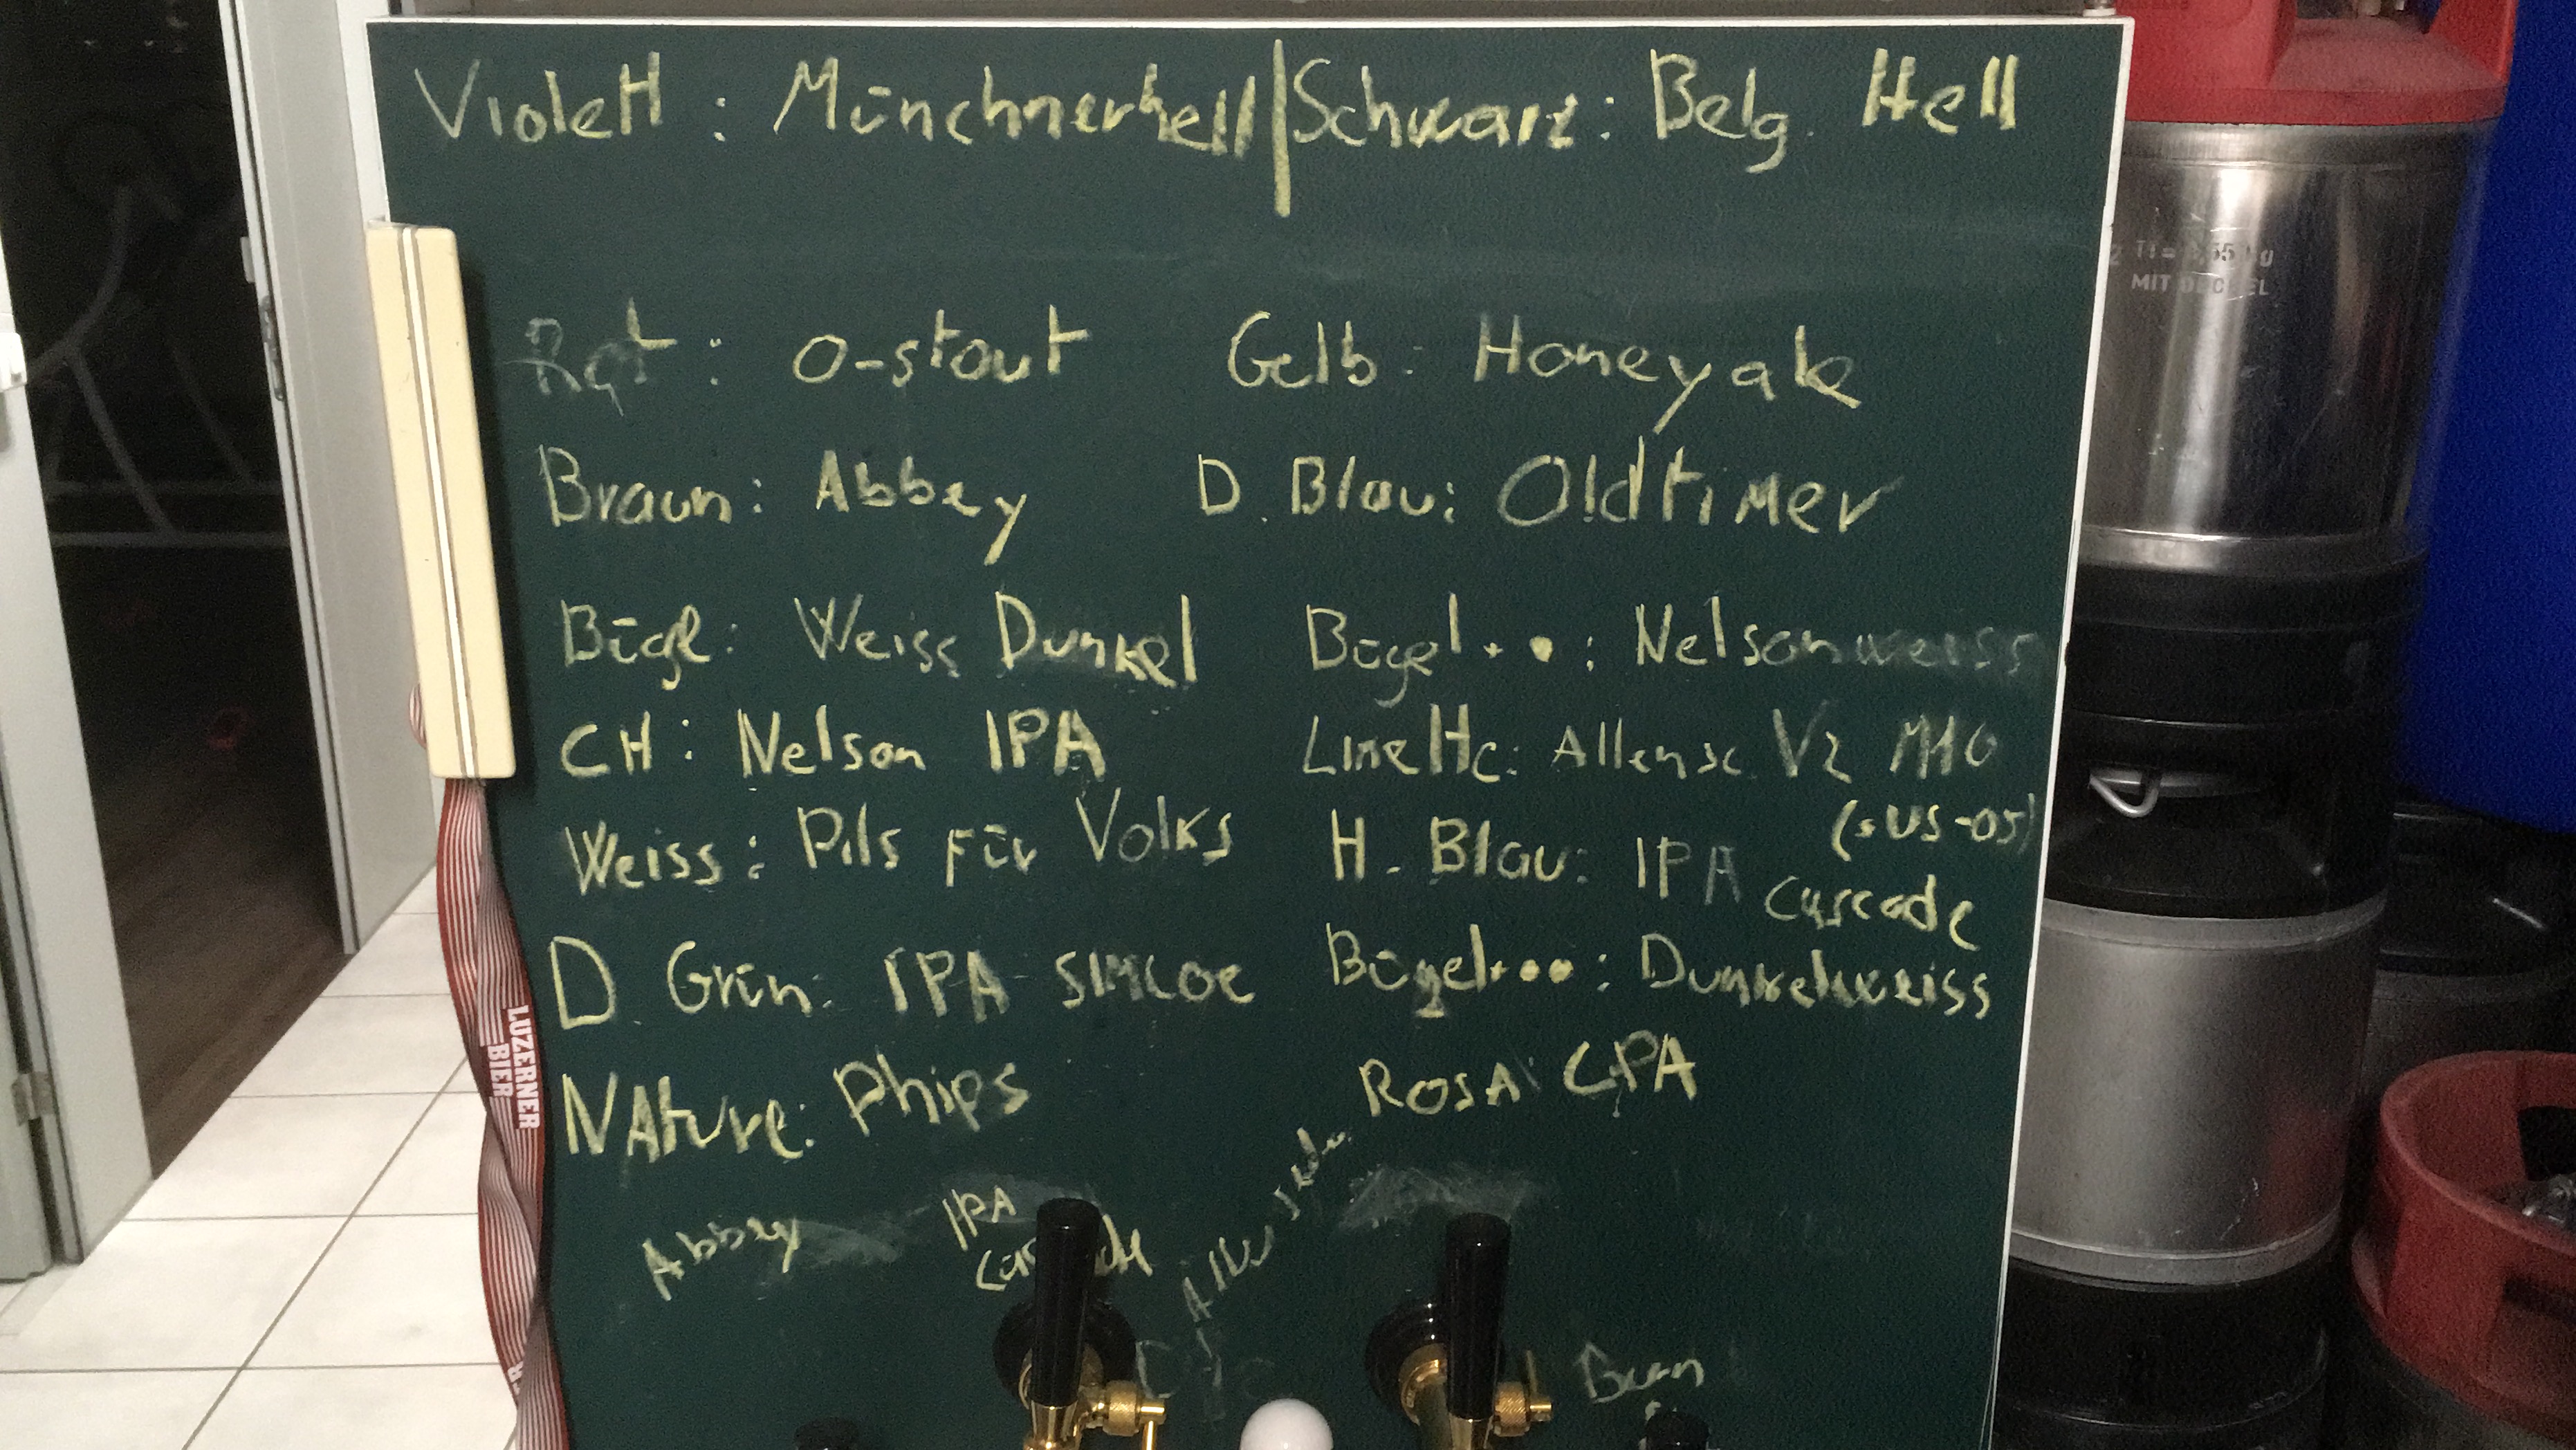 Violett : Münchnerhell | Schwarz : Belg. Hell
Rot : O-stout Gelb : Honeyale
Braun : Abbey D. Blau : Oldtimer
Bügel : Weiss Dunkel Bügel • • : Nelsonweiss
CH : Nelson IPA V2 M10
(+US-05)
Weiss : Pils Für Volks H. Blau : IPA Cascade
D Grün : IPA SIMCOE Bügel • • • : Dunkelweiss
NAture : Phips ROSA : CPA
Abbey IPA
MIT DECKEL
LUZERNER
BIER